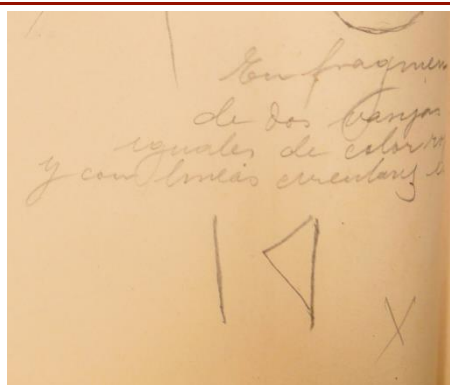 En fragmen
de dos vasijas
iguales de color
y con lineas circulares